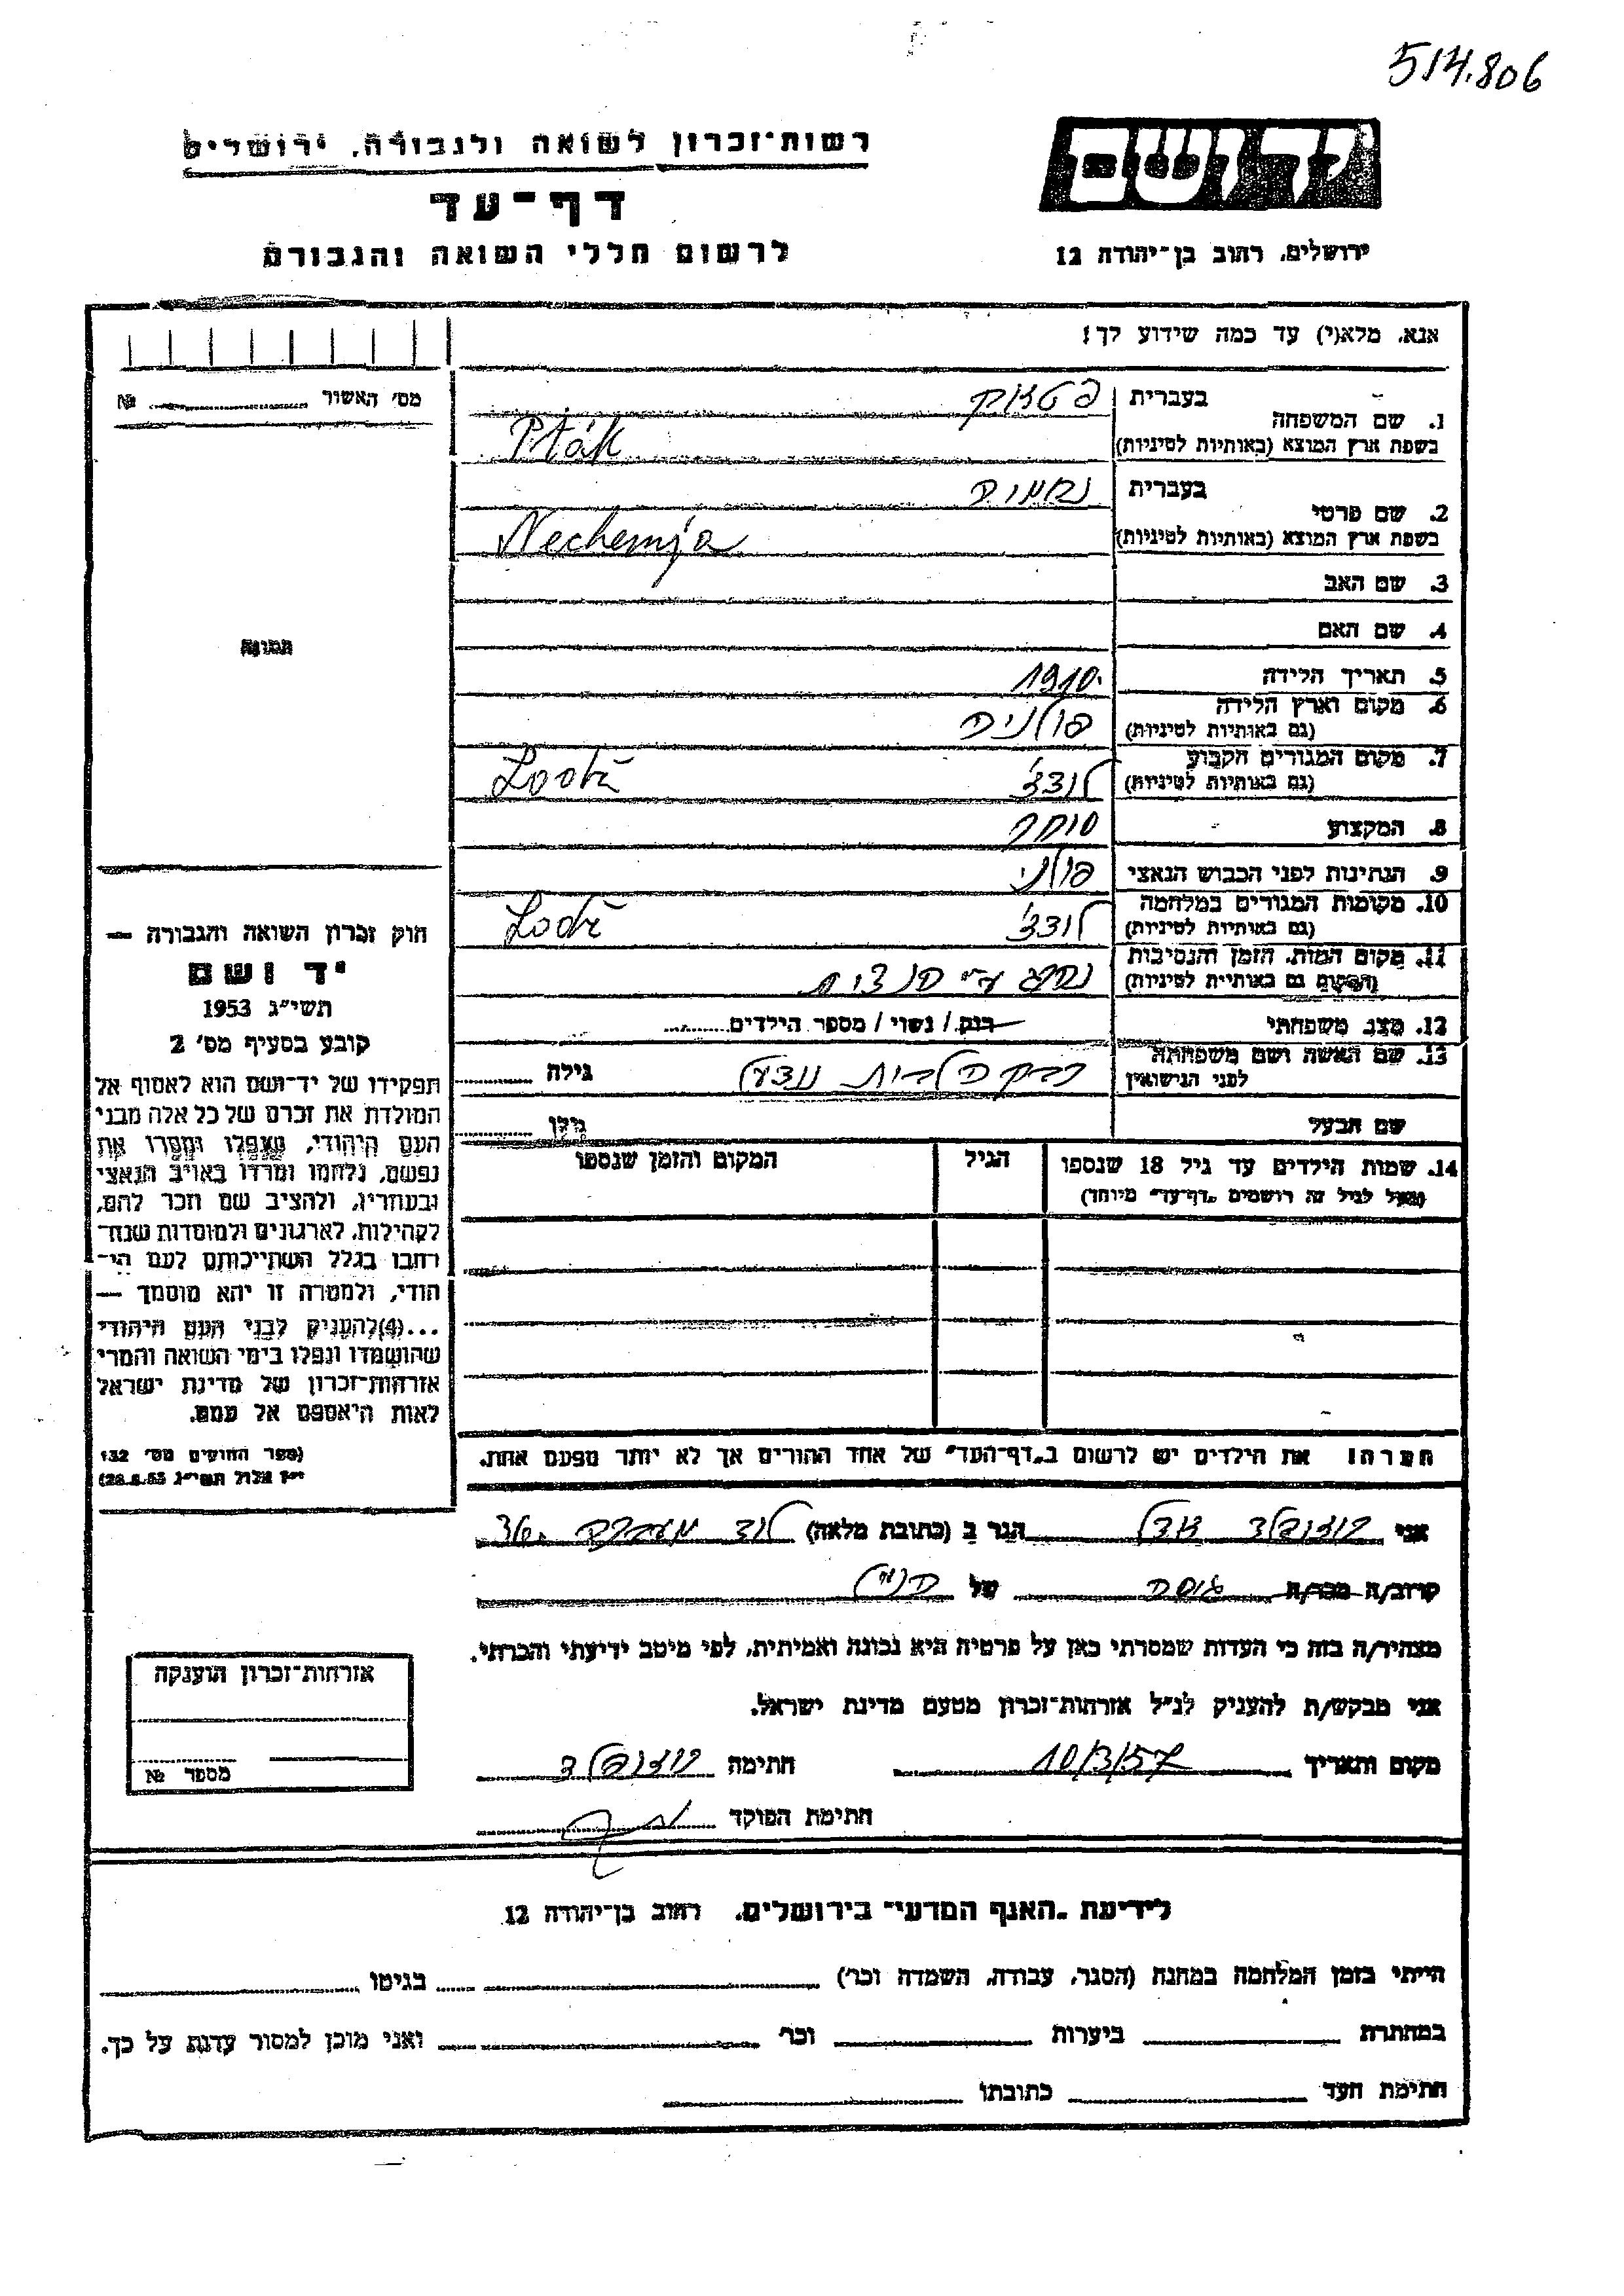 514.806
רשות־זכרון לשואה ולגבורה, ירושלים
דף־עד
לרשום חללי השואה והגבורה
יד ושם
ירושלים, רחוב בן־יהודה 12
אנא, מלא(י) עד כמה שידוע לך!
מס' האשור № 
בעברית פטאק
1. שם המשפחה
בשפת ארץ המוצא (באותיות לטיניות) Pták
בעברית נחמיה
2. שם פרטי
בשפת ארץ המוצא (באותיות לטיניות) Nechemja
3. שם האב
4. שם האם
תמונה
5. תאריך הלידה 1910
6. מקום וארץ הלידה
(גם באותיות לטיניות) פולניה
7. מקום המגורים הקבוע
(גם באותיות לטיניות) לודז' Lodź
8. המקצוע סוחר
9. הנתינות לפני הכבוש הנאצי פולני
10. מקומות המגורים במלחמה
(גם באותיות לטיניות) לודז' Lodź
11. מקום המות, הזמן והנסיבות
(המקום גם באותיות לטיניות) נהרג ע"י
12. מצב משפחתי רוק / נשוי / מספר הילדים
13. שם האשה ושם משפחתה
לפני הנישואין רבקה לבית גילה
שם הבעל גילו
14. שמות הילדים עד גיל 18 שנספו הגיל המקום והזמן שנספו
(מעל לגיל זה רושמים "דף־עד" מיוחד)
הערה! את הילדים יש לרשום ב"דף־העד" של אחד ההורים אך לא יותר מפעם אחת.
חוק זכרון השואה והגבורה —
יד ושם
תשי"ג 1953
קובע בסעיף מס' 2
תפקידו של יד־ושם הוא לאסוף אל
המולדת את זכרם של כל אלה מבני
העם היהודי, שנפלו ומסרו את
נפשם, נלחמו ומרדו באויב הנאצי
ובעוזריו, ולהציב שם וזכר להם,
לקהילות, לארגונים ולמוסדות שנח־
רבו בגלל השתייכותם לעם הי־
הודי, ולמטרה זו יהא מוסמך —
...(4) להעניק לבני העם היהודי
שהושמדו ונפלו בימי השואה והמרי
אזרחות־זכרון של מדינת ישראל
לאות היאספם אל עמם.
(ספר החוקים מס' 132
י"ז אלול תשי"ג 28.8.53)
אני הגר ב (כתובת מלאה) לוד
קרוב/ה מכר/ה גיסה של הנ"ל
מצהיר/ה בזה כי העדות שמסרתי כאן על פרטיה היא נכונה ואמיתית, לפי מיטב ידיעתי והכרתי.
אני מבקש/ת להעניק לנ"ל אזרחות־זכרון מטעם מדינת ישראל.
מקום ותאריך 10/3/57 חתימה
חתימת הפוקד
אזרחות־זכרון הוענקה
מספר №
לידיעת "האגף המדעי" בירושלים, רחוב בן־יהודה 12
הייתי בזמן המלחמה במחנה (הסגר, עבודה, השמדה וכו') בגיטו
במחתרת ביערות וכו' ואני מוכן למסור עדות על כך.
חתימת העד כתובתו